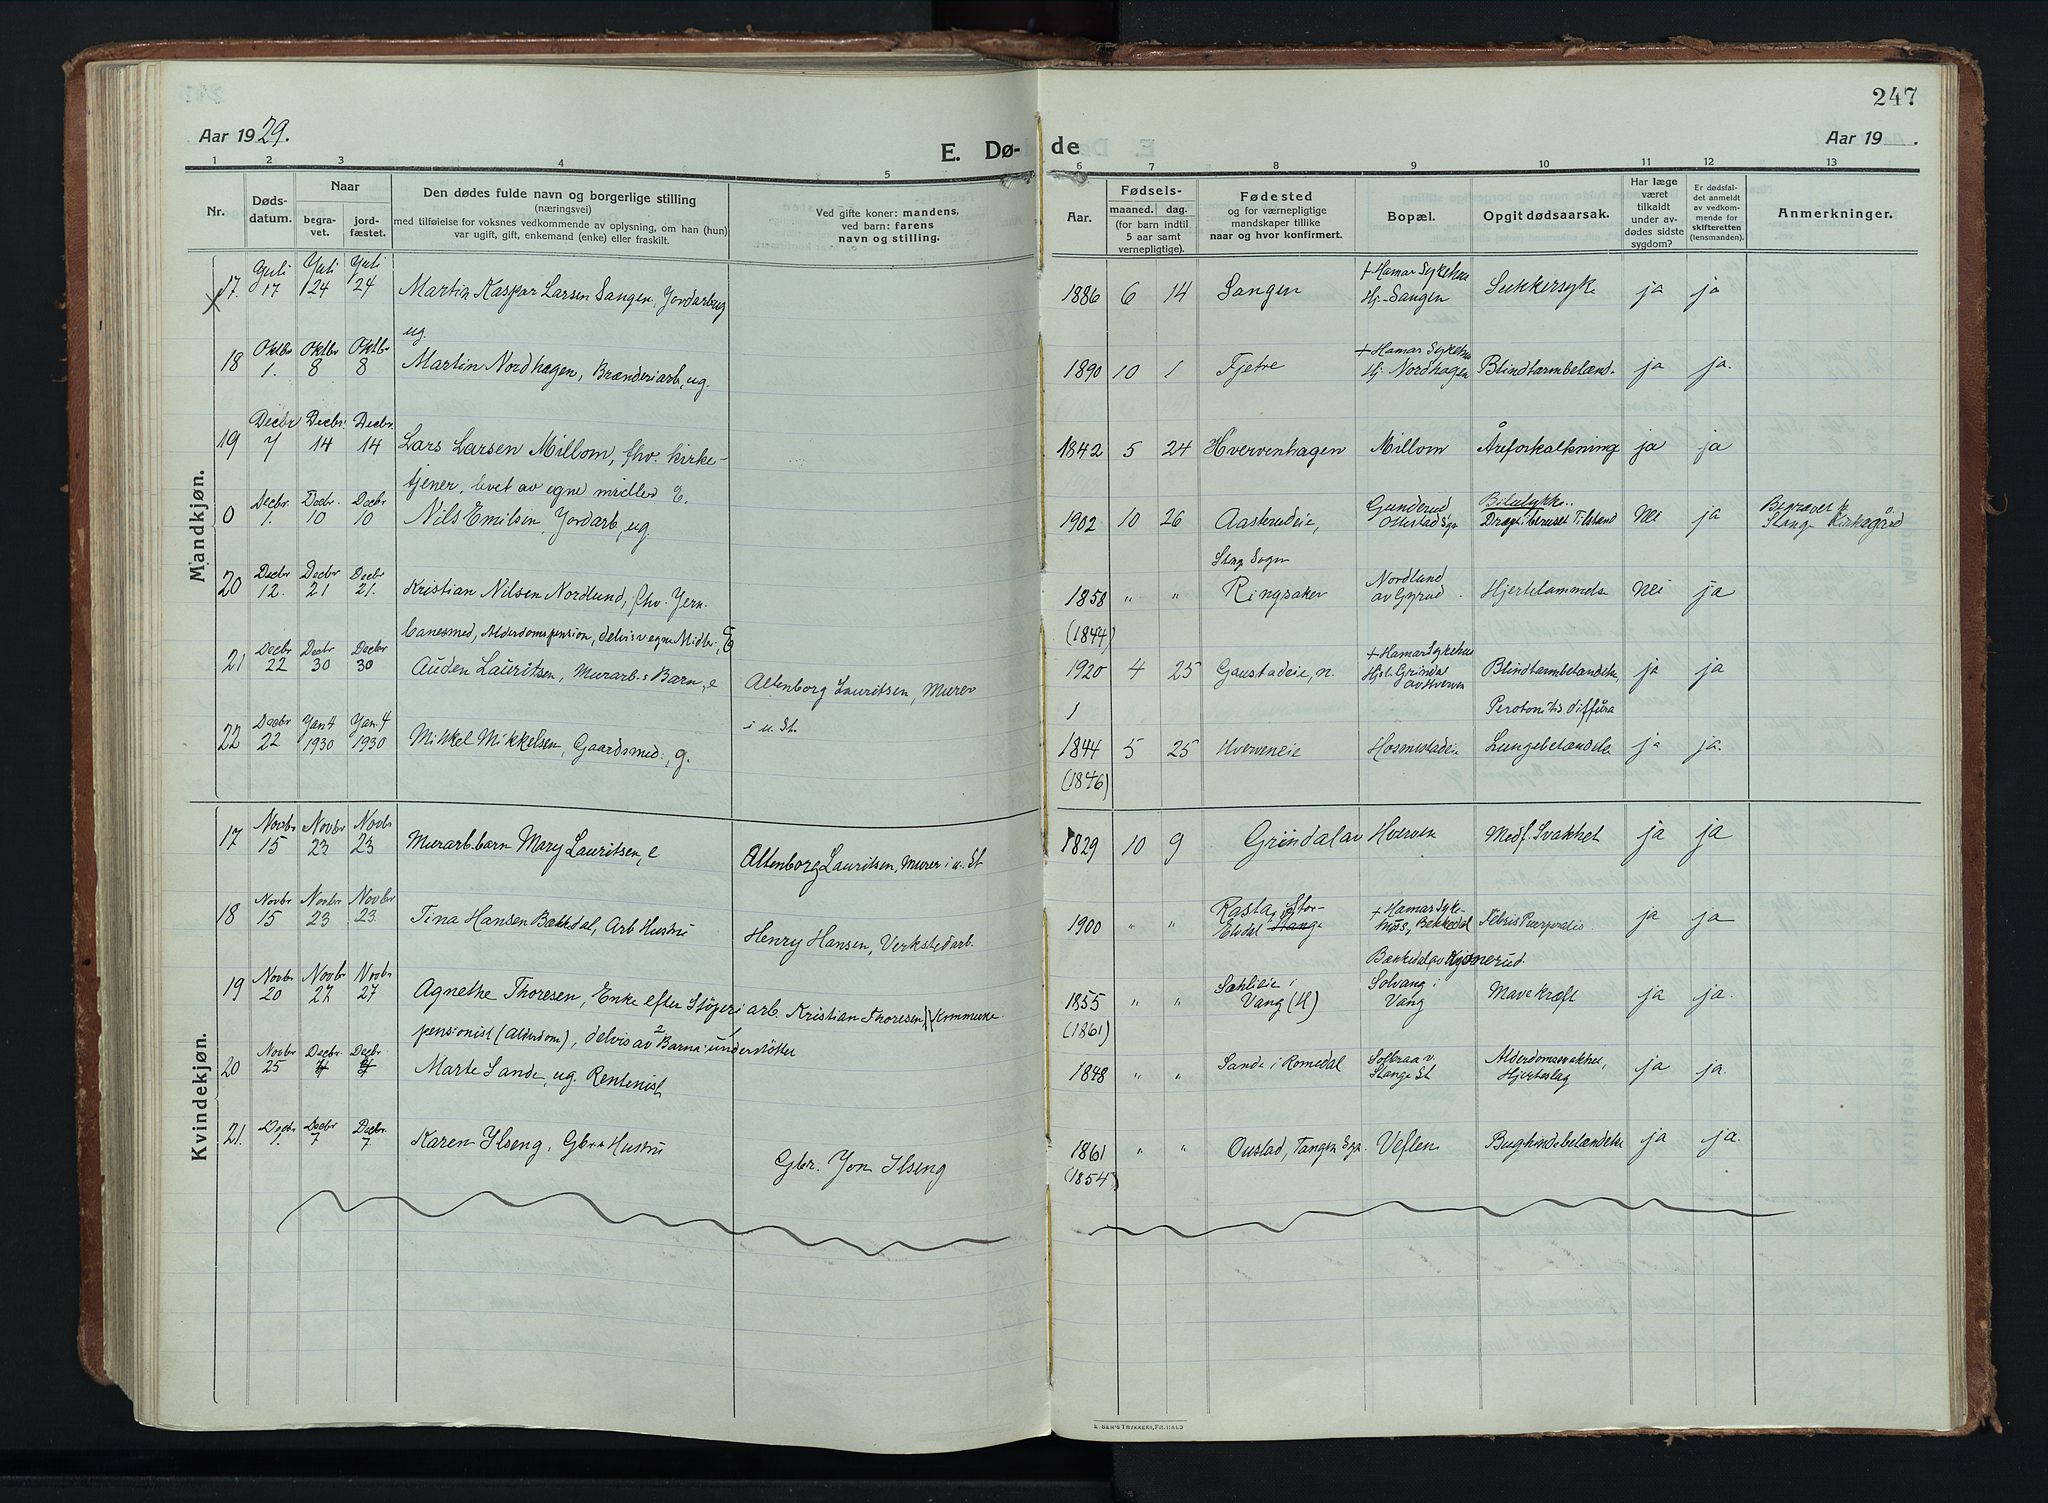 247
Aar 1929.
E. Dø-
de
Aar 19 .
1 2 3 4 5 6 7 8 9 10 11 12 13
Nr.
Dødsdatum.
Naar
begravet.
jordfæstet.
Den dødes fulde navn og borgerlige stilling
(næringsvei)
med tilføielse for voksnes vedkommende av oplysning, om han (hun)
var ugift, gift, enkemand (enke) eller fraskilt.
Ved gifte koner: mandens,
ved barn: farens
navn og stilling.
Fødsels-
Aar.
maaned.
dag.
(for barn indtil
5 aar samt
vernepligtige).
Fødested
og for værnepligtige
mandskaper tillike
naar og hvor konfirmert.
Bopæl.
Opgit dødsaarsak.
Har læge
været
tilkaldt
under av-
dødes sidste
sygdom?
Er dødsfal-
det anmeldt
av vedkom-
mende for
skifteretten
(lensmanden).
Anmerkninger.
Mandkjøn.
17. Juli 17 Juli 24 Juli 24 Martin Kaspar Larsen Sangen, Jordarb. ug. 1886 6 14 Sangen + Hamar Sykehus Hj. Sangen Sukkersyke ja ja
18 Oktbr 1. Oktbr 8 Oktbr 8 Martin Nordhagen, Brænderiarb, ug. 1890 10 1 Fjetre + Hamar Sykehus Hj. Nordhagen Blindtarmbetænd. ja ja.
19 Decbr 7 Decbr. 14 Decbr. 14 Lars Larsen Millom, fhv. kirke-
tjener, levet av egne midler E. 1842 5 24 Hvervenhagen Millom Åreforkalkning ja ja
0 Decbr. 1. Decbr. 10 Decbr 10 Nils Emilsen, Jordarb, ug. 1902 10 26 Aasterudeie, Stang Sogn Gunderud Ottestad Sgn Bilulykke. Tilstand Nei ja Begravet p. Stange Kirkegård
20 Decbr 12. Decbr 21 Decbr 21. Kristian Nilsen Nordlund, fhv. Jern-
banesmed, Alderdomspension, delvis v egne Midler, E 1858 (1844) " " Ringsaker Nordlund av Gyrud Hjertelammelse Nei ja
21 Decbr 22 Decbr 30 Decbr 30 Auden Lauritsen, Murarb.s Barn, e Altenborg Lauritsen, Murer
i u. St. 1920 4 25 Gaustadeie, n. + Hamar Sykehus Hjst. Grindal av Hverven Blindtarmbetændelse, Perotonitis diffusa ja ja
22 Decbr 22 Jan 4 1930 Jan. 4 1930 Mikkel Mikkelsen, Gaardsmed:, g. 1844 (1846) 5 25 Hverveneie Hosenstadeie Lungebetændelse ja ja.
Kvindekjøn.
17 Novbr 15 Novbr 23 Novbr 23 Murarb.barn Mary Lauritsen, e Altenborg Lauritsen, Murer i u. St 1829 10 9 Grindal av Hverven Medf. Svakhet ja ja
18 Novbr 15 Novbr 23 Novbr 23. Tina Hansen Bækkedal, Arb Hustru Henry Hansen, Verkstedarb. 1900 " " Rasta, i Stor-Elvdal Stange + Hamar Sykehus, Bekkedal Bækkedal av Kjonerud. Febris Puerperalis. ja ja
19 Novbr 20 Novbr 27 Novbr 27 Agnethe Thoresen, Enke efter Støperiarb. Kristian Thoresen, Kommune-
pensionist (Alderdom), delvis av 2 Barna understøttet 1855 (1861) " " Sæhlieie i Vang (H) Solvang i Vang Mavekræft ja ja.
20 Novbr 25 Decbr. Decbr Marte Sande, ug. Rentenist 1848 " " Sande i Romedal Solbraa v. Stange St Alderdomssvakhet, Hjerteslag ja ja.
21. Decbr 1. Decbr 7 Decbr. 7 Karen Ilseng, Gbr. Hustru Gbr. Jon Ilseng 1861 (1854) " " Oustad, Tangen Sgn. Veflen Bughindebetændelse ja ja.